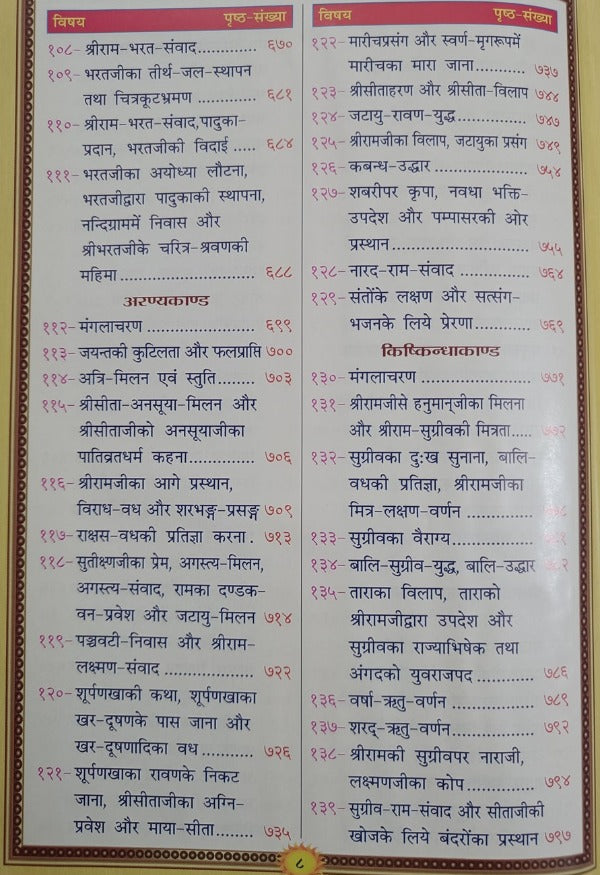 विषय पृष्ठ-संख्या
१०८- श्रीराम-भरत-संवाद............. ६७०
१०९- भरतजीका तीर्थ-जल-स्थापन
तथा चित्रकूटभ्रमण ............. ६८१
११०- श्रीराम-भरत-संवाद,पादुका-
प्रदान, भरतजीकी विदाई ..... ६८४
१११- भरतजीका अयोध्या लौटना,
भरतजीद्वारा पादुकाकी स्थापना,
नन्दिग्राममें निवास और
श्रीभरतजीके चरित्र-श्रवणकी
महिमा .............................. ६८८
अरण्यकाण्ड
११२- मंगलाचरण ........................ ६९९
११३- जयन्तकी कुटिलता और फलप्राप्ति ७००
११४- अत्रि-मिलन एवं स्तुति......... ७०३
११५- श्रीसीता-अनसूया-मिलन और
श्रीसीताजीको अनसूयाजीका
पातिव्रतधर्म कहना............... ७०६
११६- श्रीरामजीका आगे प्रस्थान,
विराध-वध और शरभङ्ग-प्रसङ्ग ७०९
११७- राक्षस-वधकी प्रतिज्ञा करना . ७१३
११८- सुतीक्ष्णजीका प्रेम, अगस्त्य-मिलन,
अगस्त्य-संवाद, रामका दण्डक-
वन-प्रवेश और जटायु-मिलन ७१४
११९- पञ्चवटी-निवास और श्रीराम-
लक्ष्मण-संवाद .................... ७२२
१२०- शूर्पणखाकी कथा, शूर्पणखाका
खर-दूषणके पास जाना और
खर-दूषणादिका वध ............ ७२६
१२१- शूर्पणखाका रावणके निकट
जाना, श्रीसीताजीका अग्नि-
प्रवेश और माया-सीता......... ७३५
विषय पृष्ठ-संख्या
१२२- मारीचप्रसंग और स्वर्ण-मृगरूपमें
मारीचका मारा जाना........... ७३७
१२३- श्रीसीताहरण और श्रीसीता-विलाप ७४४
१२४- जटायु-रावण-युद्ध............... ७४७
१२५- श्रीरामजीका विलाप, जटायुका प्रसंग ७४९
१२६- कबन्ध-उद्धार ..................... ७५४
१२७- शबरीपर कृपा, नवधा भक्ति-
उपदेश और पम्पासरकी ओर
प्रस्थान............................... ७५५
१२८- नारद-राम-संवाद ............... ७६४
१२९- संतोंके लक्षण और सत्संग-
भजनके लिये प्रेरणा............. ७६९
किष्किन्धाकाण्ड
१३०- मंगलाचरण ........................ ७७१
१३१- श्रीरामजीसे हनुमान्‌जीका मिलना
और श्रीराम-सुग्रीवकी मित्रता..... ७७२
१३२- सुग्रीवका दुःख सुनाना, बालि-
वधकी प्रतिज्ञा, श्रीरामजीका
मित्र-लक्षण-वर्णन ...............
१३३- सुग्रीवका वैराग्य..................
१३४- बालि-सुग्रीव-युद्ध, बालि-उद्धार
१३५- ताराका विलाप, ताराको
श्रीरामजीद्वारा उपदेश और
सुग्रीवका राज्याभिषेक तथा
अंगदको युवराजपद ............. ७८६
१३६- वर्षा-ऋतु-वर्णन.................. ७८९
१३७- शरद्-ऋतु-वर्णन................. ७९२
१३८- श्रीरामकी सुग्रीवपर नाराजी,
लक्ष्मणजीका कोप............... ७९४
१३९- सुग्रीव-राम-संवाद और सीताजीकी
खोजके लिये बंदरोंका प्रस्थान ७९७
८